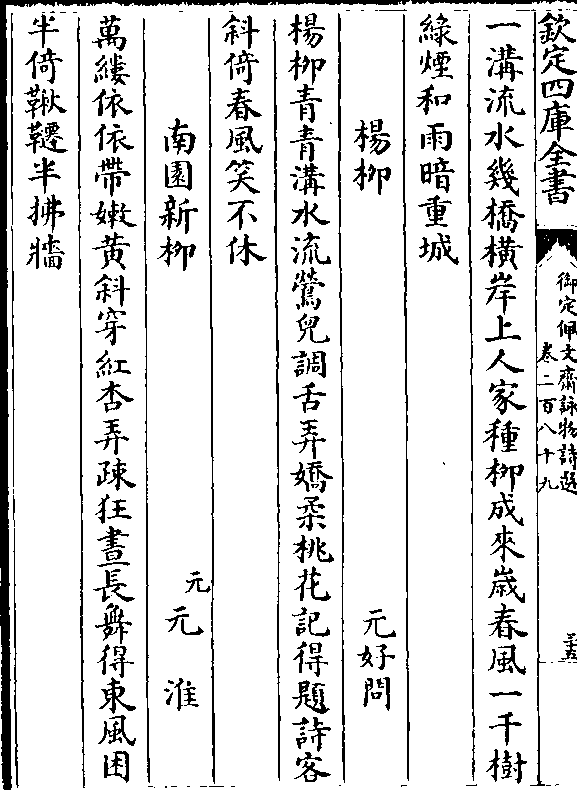 欽定四庫全書
御定佩文齋詠物詩選
卷二百八十九
一溝流水幾橋橫岸上人家種柳成來嵗春風一千樹
綠煙和雨暗重城
楊柳
元好問
楊柳青青溝水流鶯兒調舌弄嬌柔桃花記得題詩客
斜倚春風笑不休
南園新柳
元
元淮
萬縷依依帶嫩黄斜穿紅杏弄疎狂晝長舞得東風困
半倚鞦韆半拂牆